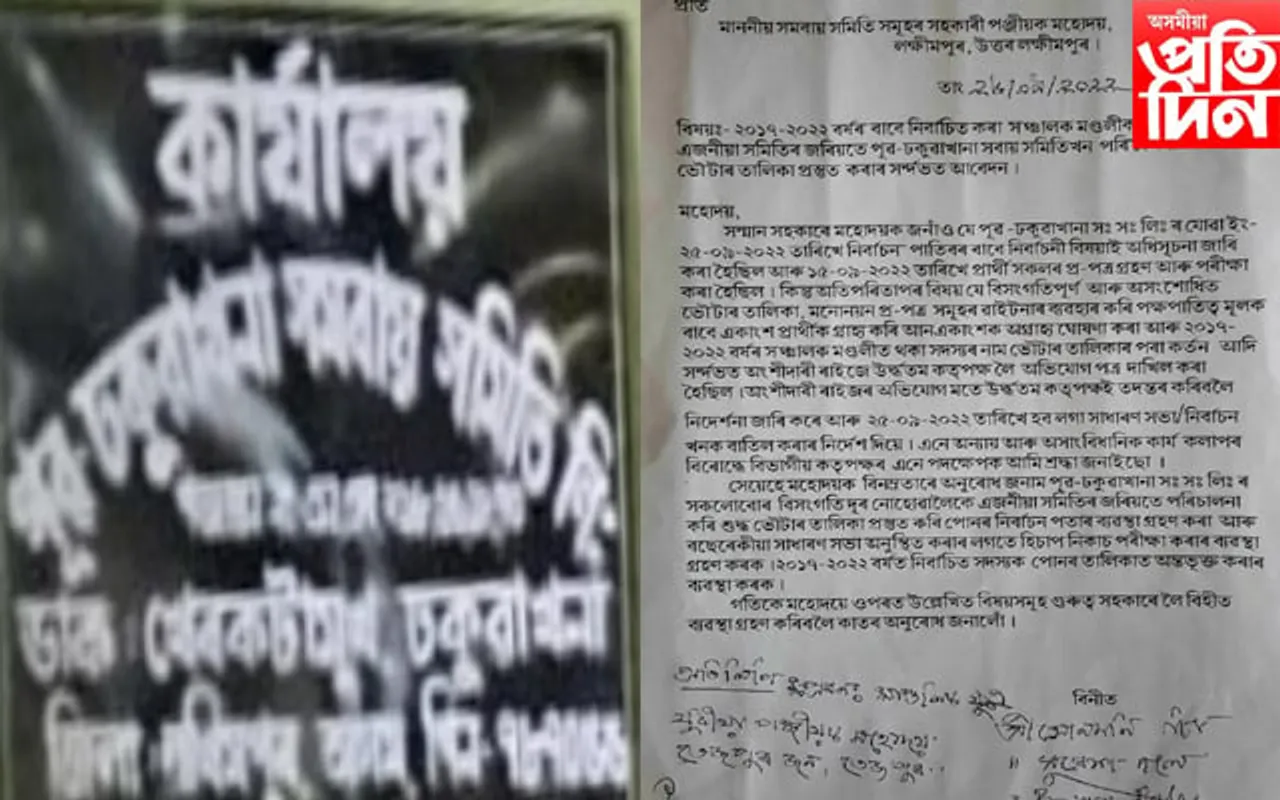 কাৰ্য্যালয়
পূব ঢকুৱাখনা সমবায় সমিতি লি.
ডাক খেৰকটাচুক, ঢকুৱাখনা
জিলা লখিমপুৰ, অসম, পিন-
প্ৰতি
মাননীয় সমবায় সমিতি সমূহৰ সহকাৰী পঞ্জীয়ক মহোদয়,
লক্ষীমপুৰ, উত্তৰ লক্ষীমপুৰ ।
অসমীয়া
প্ৰতি
দিন
তাং
বিষয়ঃ- ২০১৭-২০২২ বৰ্ষৰ বাবে নিৰ্বাচিত কৰা সঞ্চালক মণ্ডলীক
এজনীয়া সমিতিৰ জৰিয়তে পূৱ-ঢকুৱাখানা সবায় সমিতিখন
ভৌটাৰ তালিকা প্ৰস্তুত কৰাৰ সৰ্ন্দভত আবেদন ।
মহোদয়,
সন্মান সহকাৰে মহোদয়ক জনাঁও যে পূৱ -ঢকুৱাখানা সঃ সঃ লিঃ ৰ যোৱা ইং-
২৫-০৯-২০২২ তাৰিখে নিৰ্বাচন পাতিৰৰ বাবে নিৰ্বাচনী বিষয়াই অধিসূচনা জাৰি
কৰা হৈছিল আৰু ১৫-০৯-২০২২ তাৰিখে প্ৰাৰ্থী সকলৰ প্ৰ-পত্ৰ গ্ৰহণ আৰু পৰীক্ষা
কৰা হৈছিল । কিন্তু অতিপৰিতাপৰ বিষয় যে বিসংগতিপূৰ্ণ আৰু অসংশোধিত
ভৌটাৰ তালিকা, মনোনয়ন প্ৰ-পত্ৰ সমূহৰ ৱাইটনাৰ ব্যৱহাৰ কৰি পক্ষপাতিত্ব মূলক
বাবে একাংশ প্ৰাৰ্থীক গ্ৰাহ্য কৰি আনএকাংশক অগ্ৰাহ্য ঘোষণা কৰা আৰু ২০১৭-
২০২২ বৰ্ষৰ সঞ্চালক মণ্ডলীত থকা সদস্যৰ নাম ভৌটাৰ তালিকাৰ পৰা কৰ্তন আদি
সৰ্ন্দভত অংশীদাৰী ৰাইজে উৰ্দ্ধতম কতৃপক্ষ লৈ অভিযোগ পত্ৰ দাখিল কৰা
হৈছিল ।অংশীদাৰী ৰাইজৰ অভিযোগ মতে উৰ্দ্ধতম কতৃপক্ষই তদন্তৰ কৰিবলৈ
নিদেৰ্শনা জাৰি কৰে আৰু ২৫-০৯-২০২২ তাৰিখে হব লগা সাধাৰণ সভা/নিৰ্বাচন
খনক বাতিল কৰাৰ নিৰ্দেশ দিয়ে । এনে অন্যায় আৰু অসাংবিধানিক কাৰ্য কলাপৰ
বিৰোদ্ধে বিভাগীয় কতৃপক্ষৰ এনে পদক্ষেপক আমি শ্ৰদ্ধা জনাইছো ।
সেয়েহে মহোদয়ক বিনম্ৰতাৰে অনুৰোধ জনাম পূৱ-ঢকুৱাখানা সঃ সঃ লিঃ ৰ
সকলোবোৰ বিসংগতি দূৰ নোহোৱালৈকে এজনীয়া সমিতিৰ জৰিয়তে পৰিচালনা
কৰি শুদ্ধ ভৌটাৰ তালিকা প্ৰস্তুত কৰি পোনৰ নিৰ্বাচন পতাৰ ব্যৱস্থা গ্ৰহণ কৰা আৰু
বছেৰেকীয়া সাধাৰণ সভা অনুস্থিত কৰাৰ লগতে হিচাপ নিকাচ পৰীক্ষা কৰাৰ ব্যৱস্থা
গ্ৰহণ কৰক ।২০১৭-২০২২ বৰ্ষত নিৰ্বাচিত সদস্যক পোনৰ তালিকাত অন্তভূক্ত কৰাৰ
ব্যৱস্থা কৰক ।
গতিকে মহোদয়ে ওপৰত উল্লেখিত বিষয়সমূহ গুৰুত্ব সহকাৰে লৈ বিহীত
ব্যৱস্থা গ্ৰহণ কৰিবলৈ কাতৰ অনুৰোধ জনালোঁ ।
বিনীত